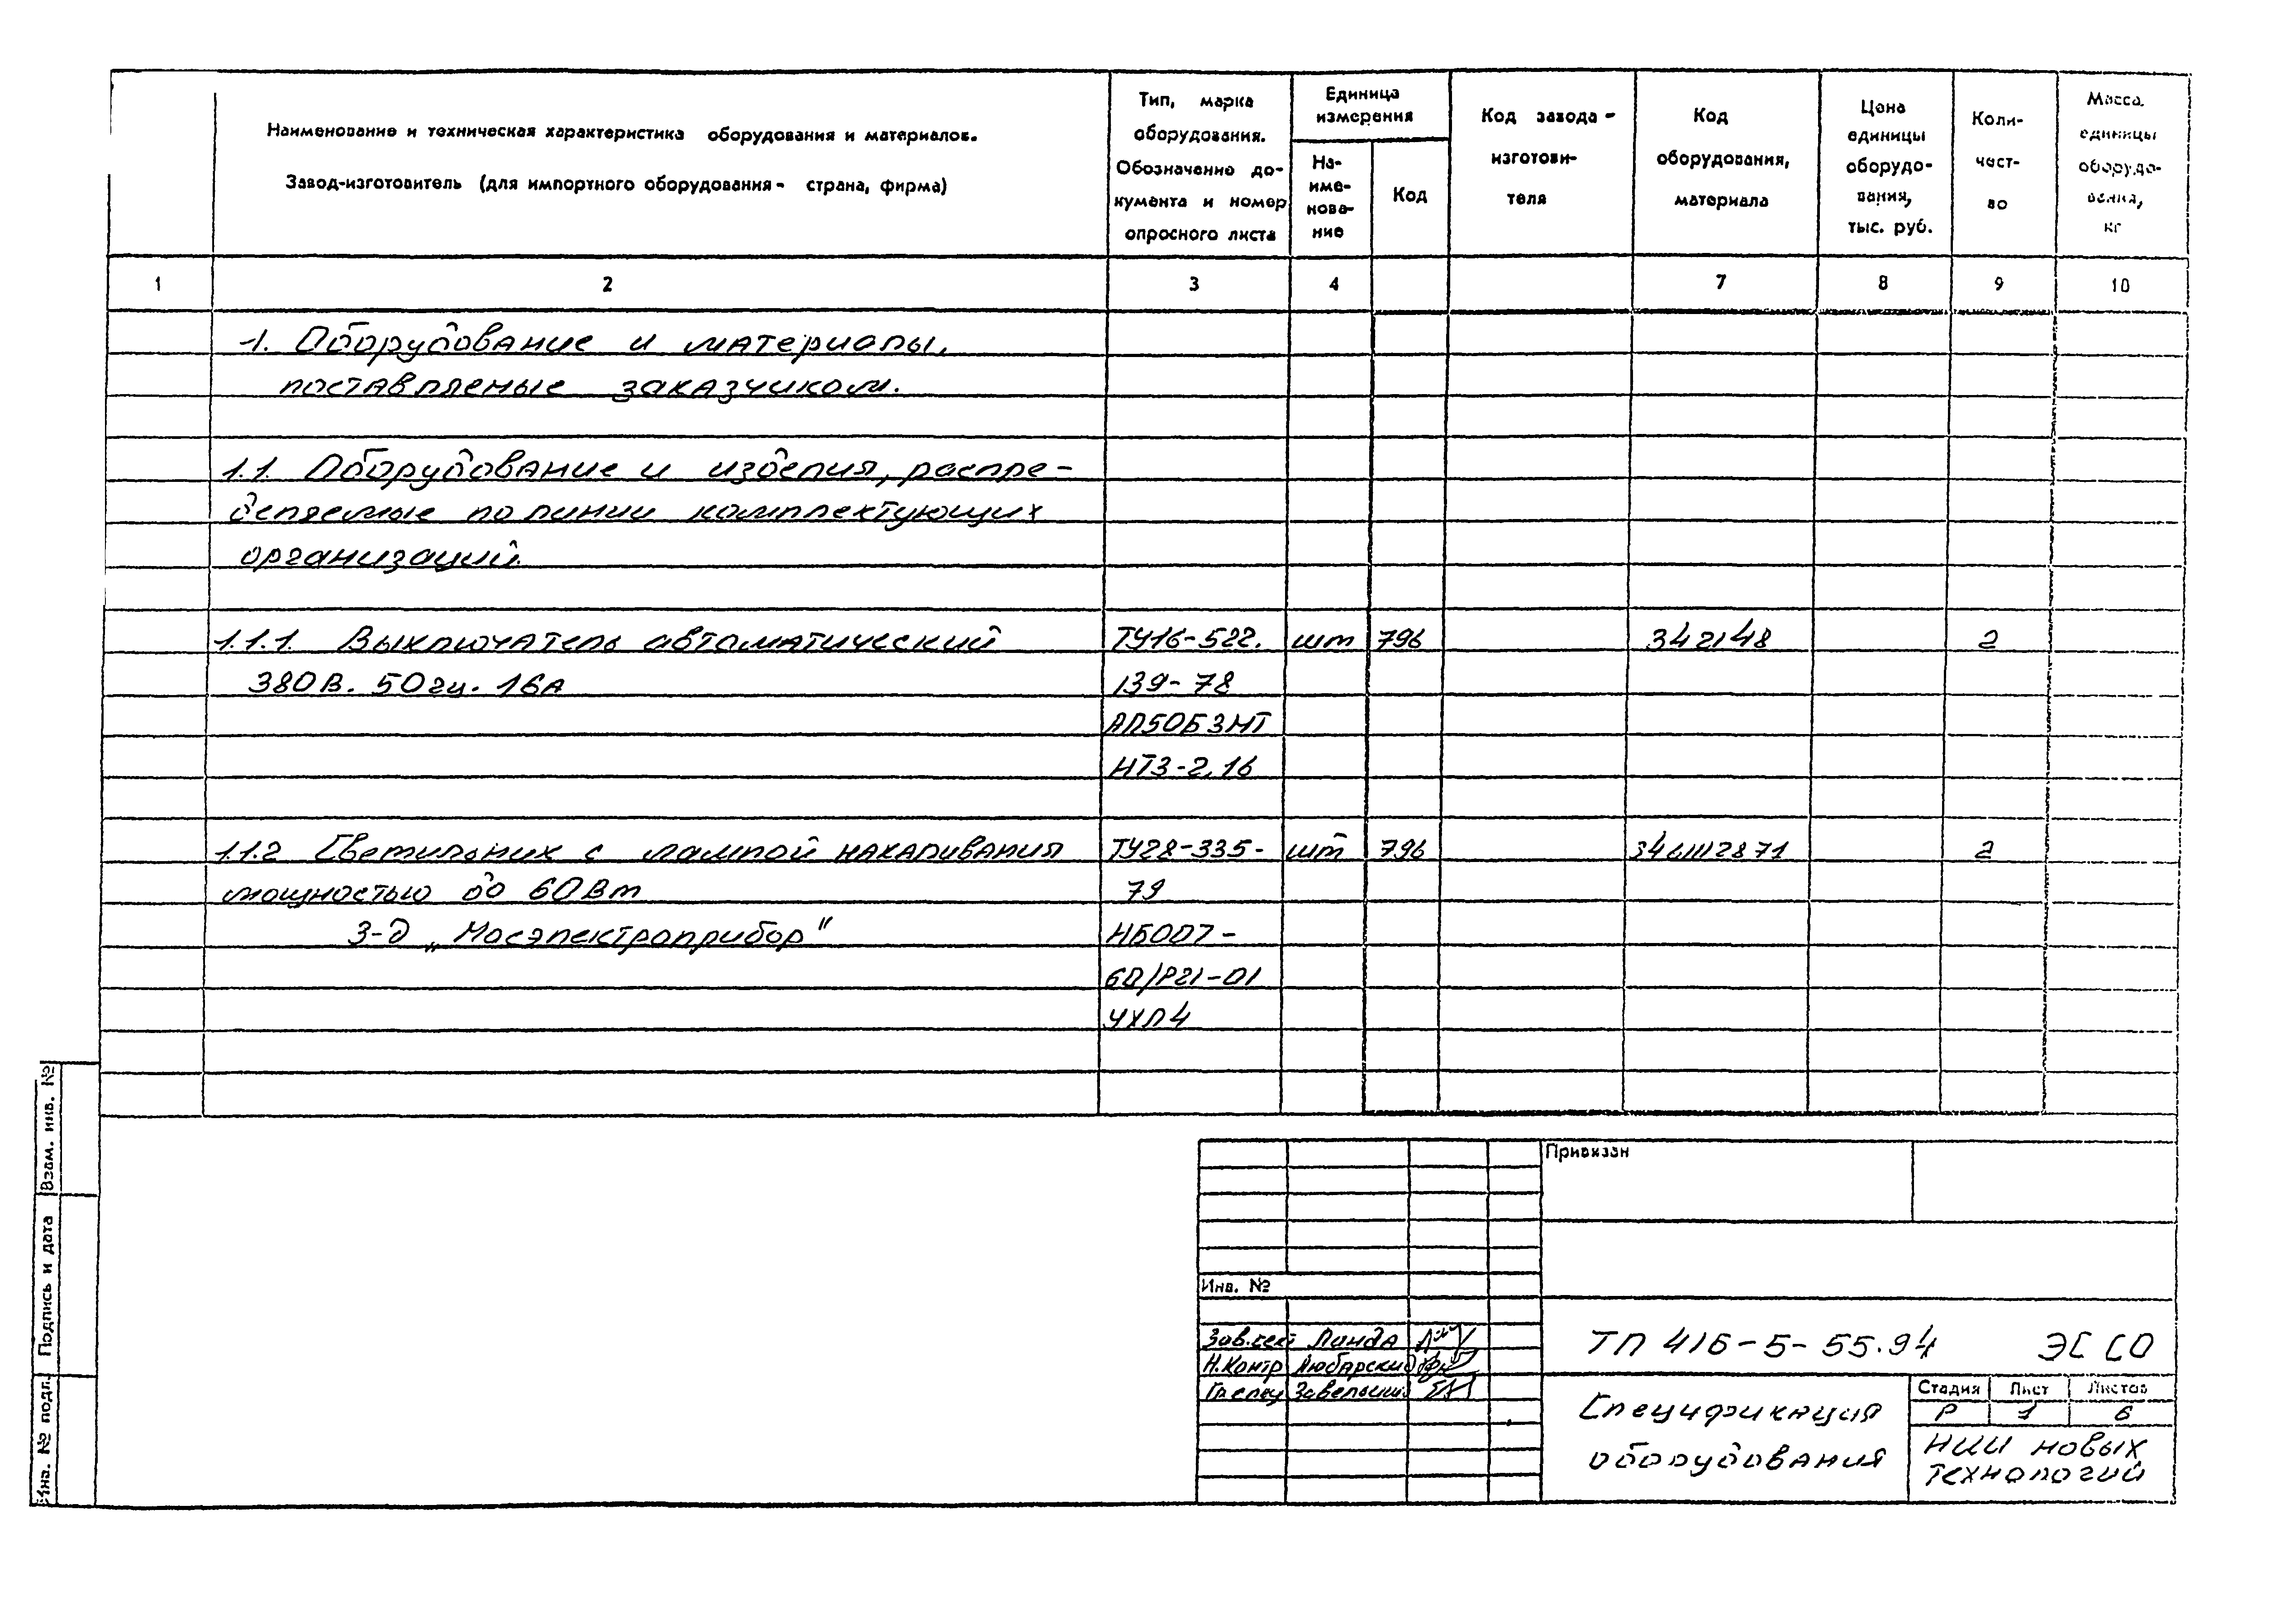 Наименование и техническая характеристика оборудования и материалов.
Завод-изготовитель (для импортного оборудования - страна, фирма)
Тип, марка
оборудования.
Обозначение до-
кумента и номер
опросного листа
Единица
измерения
На-
име-
нова-
ние
Код
Код завода -
изготови-
теля
Код
оборудования,
материала
Цена
единицы
оборудо-
вания,
тыс. руб.
Коли-
чест-
во
Масса
единицы
оборудо-
вания,
кг
1 2 3 4 7 8 9 10
1. Оборудование и материалы,
поставляемые заказчиком.
1.1. Оборудование и изделия, распре-
деляемые по линии комплектующих
организаций.
1.1.1. Выключатель автоматический ТУ16-522. шт 796 342148 2
380В. 50гц. 16А 139-78
АП50Б3МТ
НТ3-2,16
1.1.2 Светильник с лампой накаливания ТУ28-335- шт 796 3461112871 2
мощностью до 60Вт 79
З-д „Мосэлектроприбор" НБ007-
60/Р21-01
УХЛ4
Взам. инв. №
Подпись и дата
Инв. № подл.
Привязан
Инв. №
Зав.сект Линда
Н.Контр Любарский
Гл.спец
ТП 416-5-55.94 ЭС СО
Спецификация
оборудования
Стадия Лист Листов
Р 1 6
НИИ новых
технологий